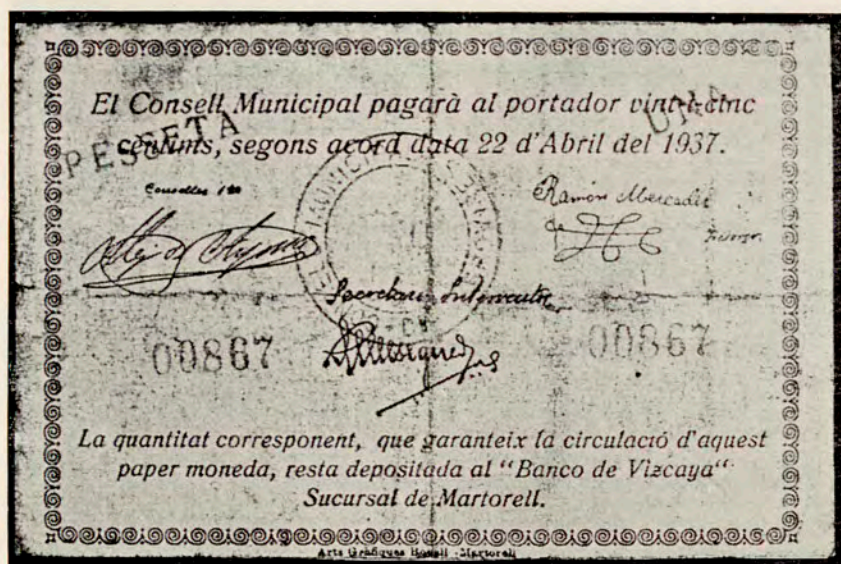 El Consell Municipal pagarà al portador vint-i-cinc
cèntims, segons acord data 22 d'Abril del 1937.
PESSETA
UNA
Conseller 1er
Ramón Mercader
Tresorer.
Secretari Interventor
00867
00867
La quantitat corresponent, que garanteix la circulació d'aquest
paper moneda, resta depositada al "Banco de Vizcaya"
Sucursal de Martorell.
Arts Gràfiques Bonell - Martorell